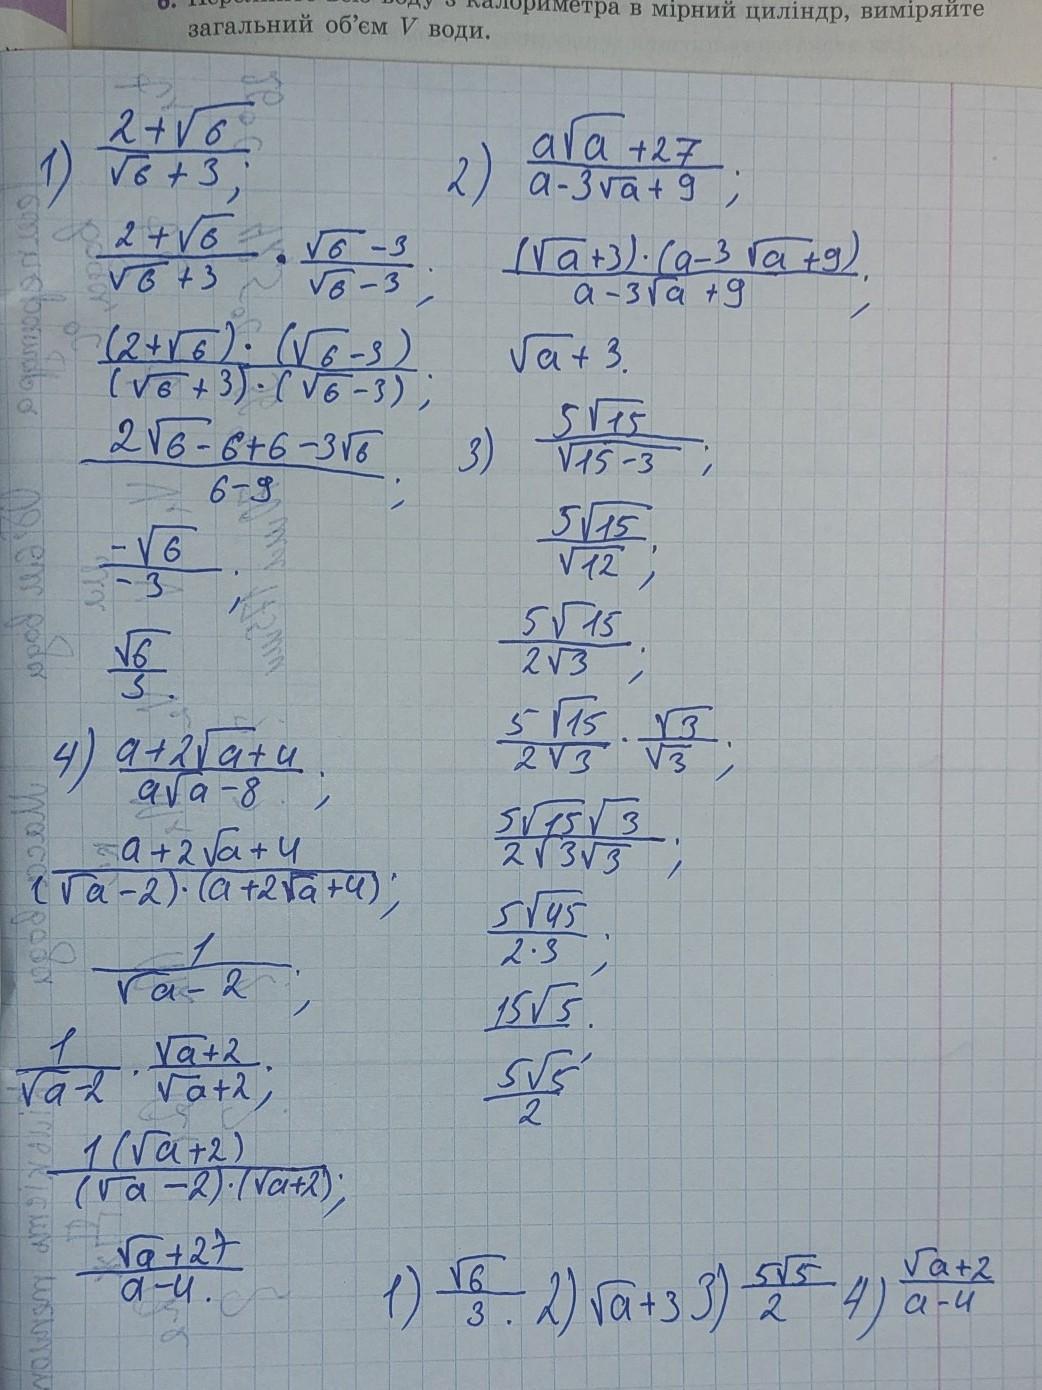 6. Перелийте всю воду з калориметра в мірний циліндр, виміряйте
загальний об'єм V води.
1) (2+√6)/(√6+3);
(2+√6)/(√6+3) · (√6-3)/(√6-3);
((2+√6)·(√6-3))/((√6+3)·(√6-3));
(2√6-6+6-3√6)/(6-9);
(-√6)/(-3);
√6/3.
2) (a√a+27)/(a-3√a+9);
((√a+3)·(a-3√a+9))/(a-3√a+9);
√a+3.
3) 5√15/√15-3;
5√15/√12;
5√15/2√3;
5√15/2√3 · √3/√3;
5√15√3/2√3√3;
5√45/2·3;
15√5.
5√5/2
4) (a+2√a+4)/(a√a-8);
(a+2√a+4)/((√a-2)·(a+2√a+4));
1/(√a-2);
1/(√a-2) · (√a+2)/(√a+2);
1(√a+2)/((√a-2)·(√a+2));
(√a+27)/(a-4).
1) √6/3. 2) √a+3 3) 5√5/2 4) (√a+2)/(a-4)